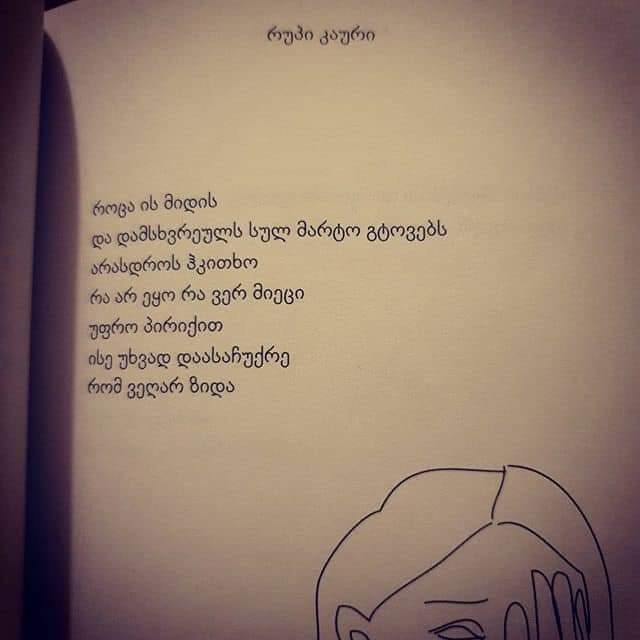 რუპი კაური
როცა ის მიდის
და დამსხვრეულს სულ მარტო გტოვებს
არასდროს ჰკითხო
რა არ ეყო რა ვერ მიეცი
უფრო პირიქით
ისე უხვად დაასაჩუქრე
რომ ვეღარ ზიდა